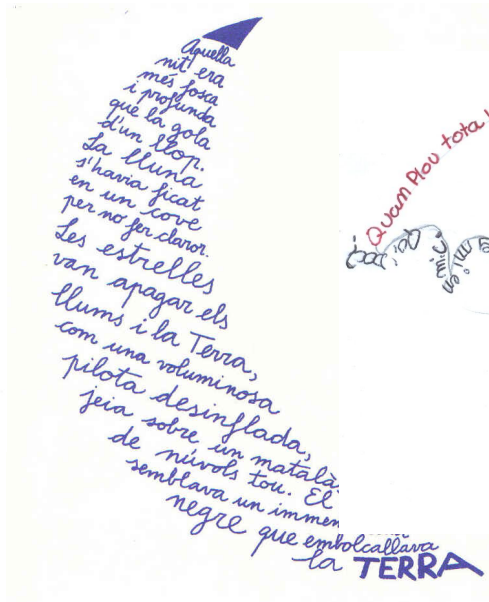 Aquella
nit era
més fosca
i profunda
que la gola
d'un llop.
La lluna
s'havia ficat
en un cove
per no fer claror.
Les estrelles
van apagar els
llums i la Terra,
com una voluminosa
pilota desinflada,
jeia sobre un
de núvols tou. El
semblava un
negre que embolcallava
la TERRA
Quan Plou tota